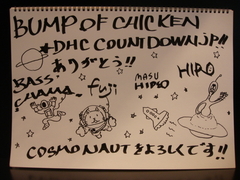 BUMP OF CHICKEN
+DHC COUNTDOWN JP!!
ありがとう!!
BASS CHAMA
fuji
MASU HIDEO
HIRO
COSMONAUTをよろしくです!!